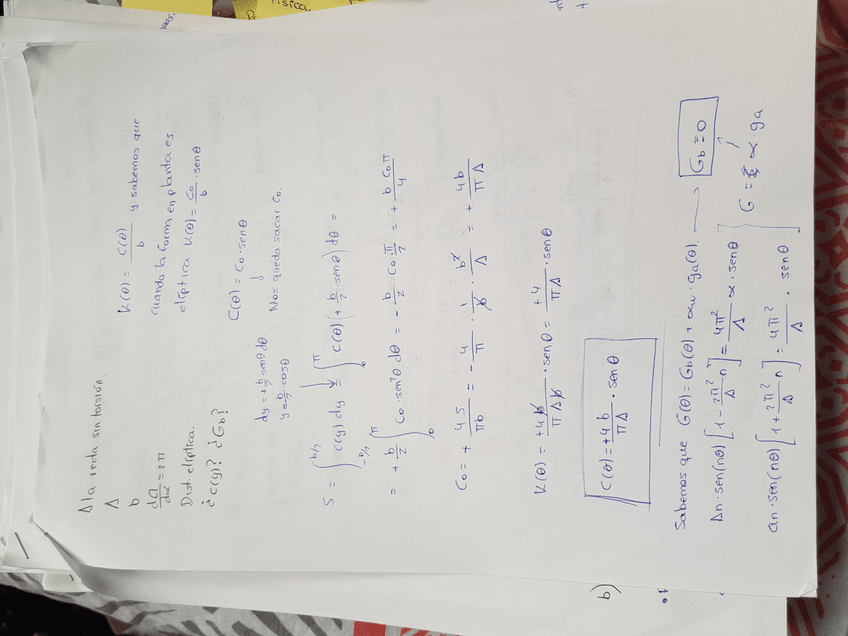 Ala recta sin torsión.
Λ
b
da/dα = 2π
Dist. elíptica.
¿c(y)? ¿Gb?
K(θ) = C(θ)/b y sabemos que
cuando la forma en planta es
elíptica K(θ) = C0/b · senθ
C(θ) = C0·senθ
↓
Nos queda sacar C0.
dy = +b/2 senθ dθ
y = -b/2 · cosθ
S = ∫_{-b/2}^{b/2} c(y) dy = ∫_0^π C(θ)(+b/2 · senθ) dθ =
= +b/2 ∫_0^π C0 · sen²θ dθ = -b/2 · C0 π/2 = + b C0 π/4
C0 = + 4S/πb = - 4/π · 1/b · b²/Λ = + 4b/πΛ
K(θ) = +4b/πΛb · senθ = +4/πΛ · senθ
b)
C(θ) = +4b/πΛ · senθ
Sabemos que G(θ) = Gb(θ) + αw · ga(θ). → Gb = 0
An · sen(nθ) [1 - 2π²/Λ n] = 4π²/Λ α · senθ
an · sen(nθ) [1 + 2π²/Λ n] = 4π²/Λ · senθ
G = α ga
física.